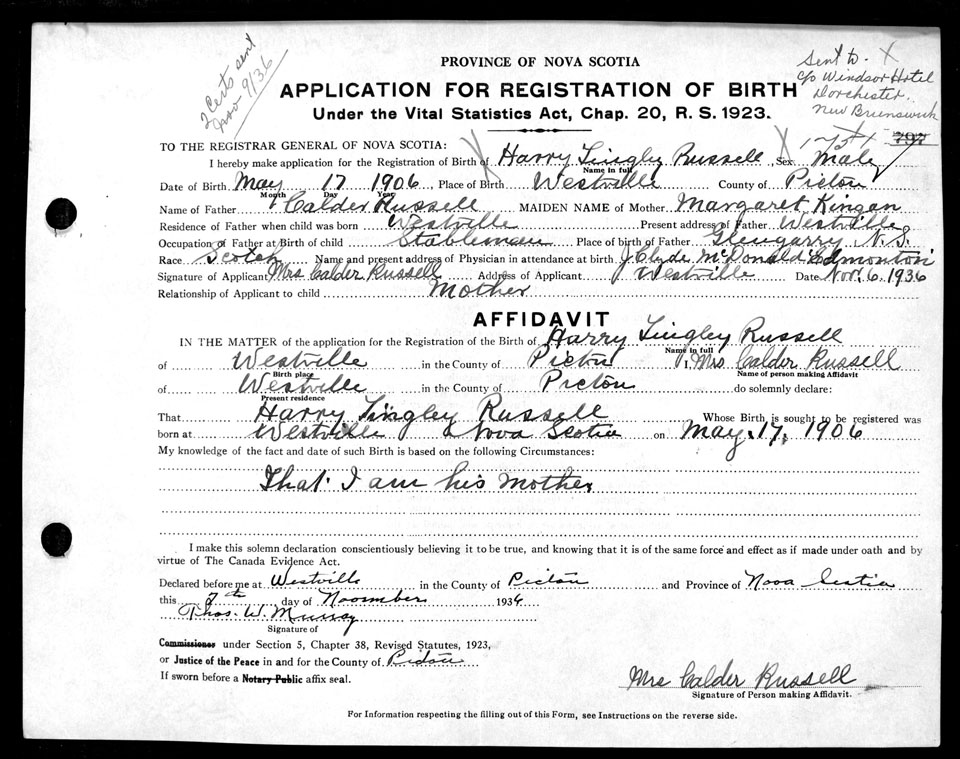 2 Certs sent
Nov 9/36
Sent to X
c/o Windsor Hotel
Dorchester
New Brunswick
797
PROVINCE OF NOVA SCOTIA
APPLICATION FOR REGISTRATION OF BIRTH
Under the Vital Statistics Act, Chap. 20, R. S. 1923.
TO THE REGISTRAR GENERAL OF NOVA SCOTIA:
I hereby make application for the Registration of Birth of Harry Tingley Russell, Sex Male
Name in full
Date of Birth May 17 1906, Place of Birth Westville County of Pictou
Month Day Year
Name of Father Calder Russell MAIDEN NAME of Mother Margaret Kingan
Residence of Father when child was born Westville Present address of Father Westville
Occupation of Father at Birth of child Stableman Place of birth of Father Glengarry N.S.
Race Scotch Name and present address of Physician in attendance at birth J. Clyde McDonald Edmonton
Signature of Applicant Mrs Calder Russell Address of Applicant Westville Date Nov. 6. 1936
Relationship of Applicant to child Mother
AFFIDAVIT
IN THE MATTER of the application for the Registration of the Birth of Harry Tingley Russell
Name in full
of Westville in the County of Pictou I, Mrs Calder Russell
Birth place Name of person making Affidavit
of Westville in the County of Pictou do solemnly declare:
Present residence
That Harry Tingley Russell Whose Birth is sought to be registered was
born at Westville Nova Scotia on May 17, 1906
My knowledge of the fact and date of such Birth is based on the following Circumstances:
That I am his Mother
I make this solemn declaration conscientiously believing it to be true, and knowing that it is of the same force and effect as if made under oath and by
virtue of The Canada Evidence Act.
Declared before me at Westville in the County of Pictou and Province of Nova Scotia
this 7th day of Noovmber 1936
Thos. W. Murray
Signature of
Commissioner under Section 5, Chapter 38, Revised Statutes, 1923,
or Justice of the Peace in and for the County of Pictou
If sworn before a Notary Public affix seal.
Mrs Calder Russell
Signature of Person making Affidavit.
For Information respecting the filling out of this Form, see Instructions on the reverse side.